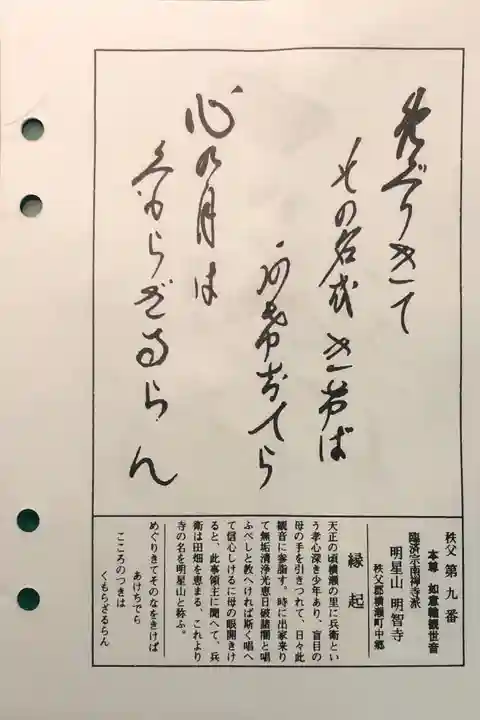 めぐりきて
その名を きけば
あけちでら
心の月は
くもらざるらん
秩父 第九番
本尊 如意輪観世音
臨済宗南禅寺派
明星山 明智寺
秩父郡横瀬町中郷
縁起
天正の頃横瀬の里に兵衛とい
う孝心深き少年あり、盲目の
母の手を引きつれて、日々此
観音に参詣す。時に出家来り
て無垢清浄光恵日破諸闇と唱
ふべしと教へければ斯く唱へ
て信心しけるに母の眼開きけ
ると、此事領主に聞へて、兵
衛は田畑を恵まる、これより
寺の名を明星山と称ふ。
めぐりきてそのなをきけば
あけちでら
こころのつきは
くもらざるらん